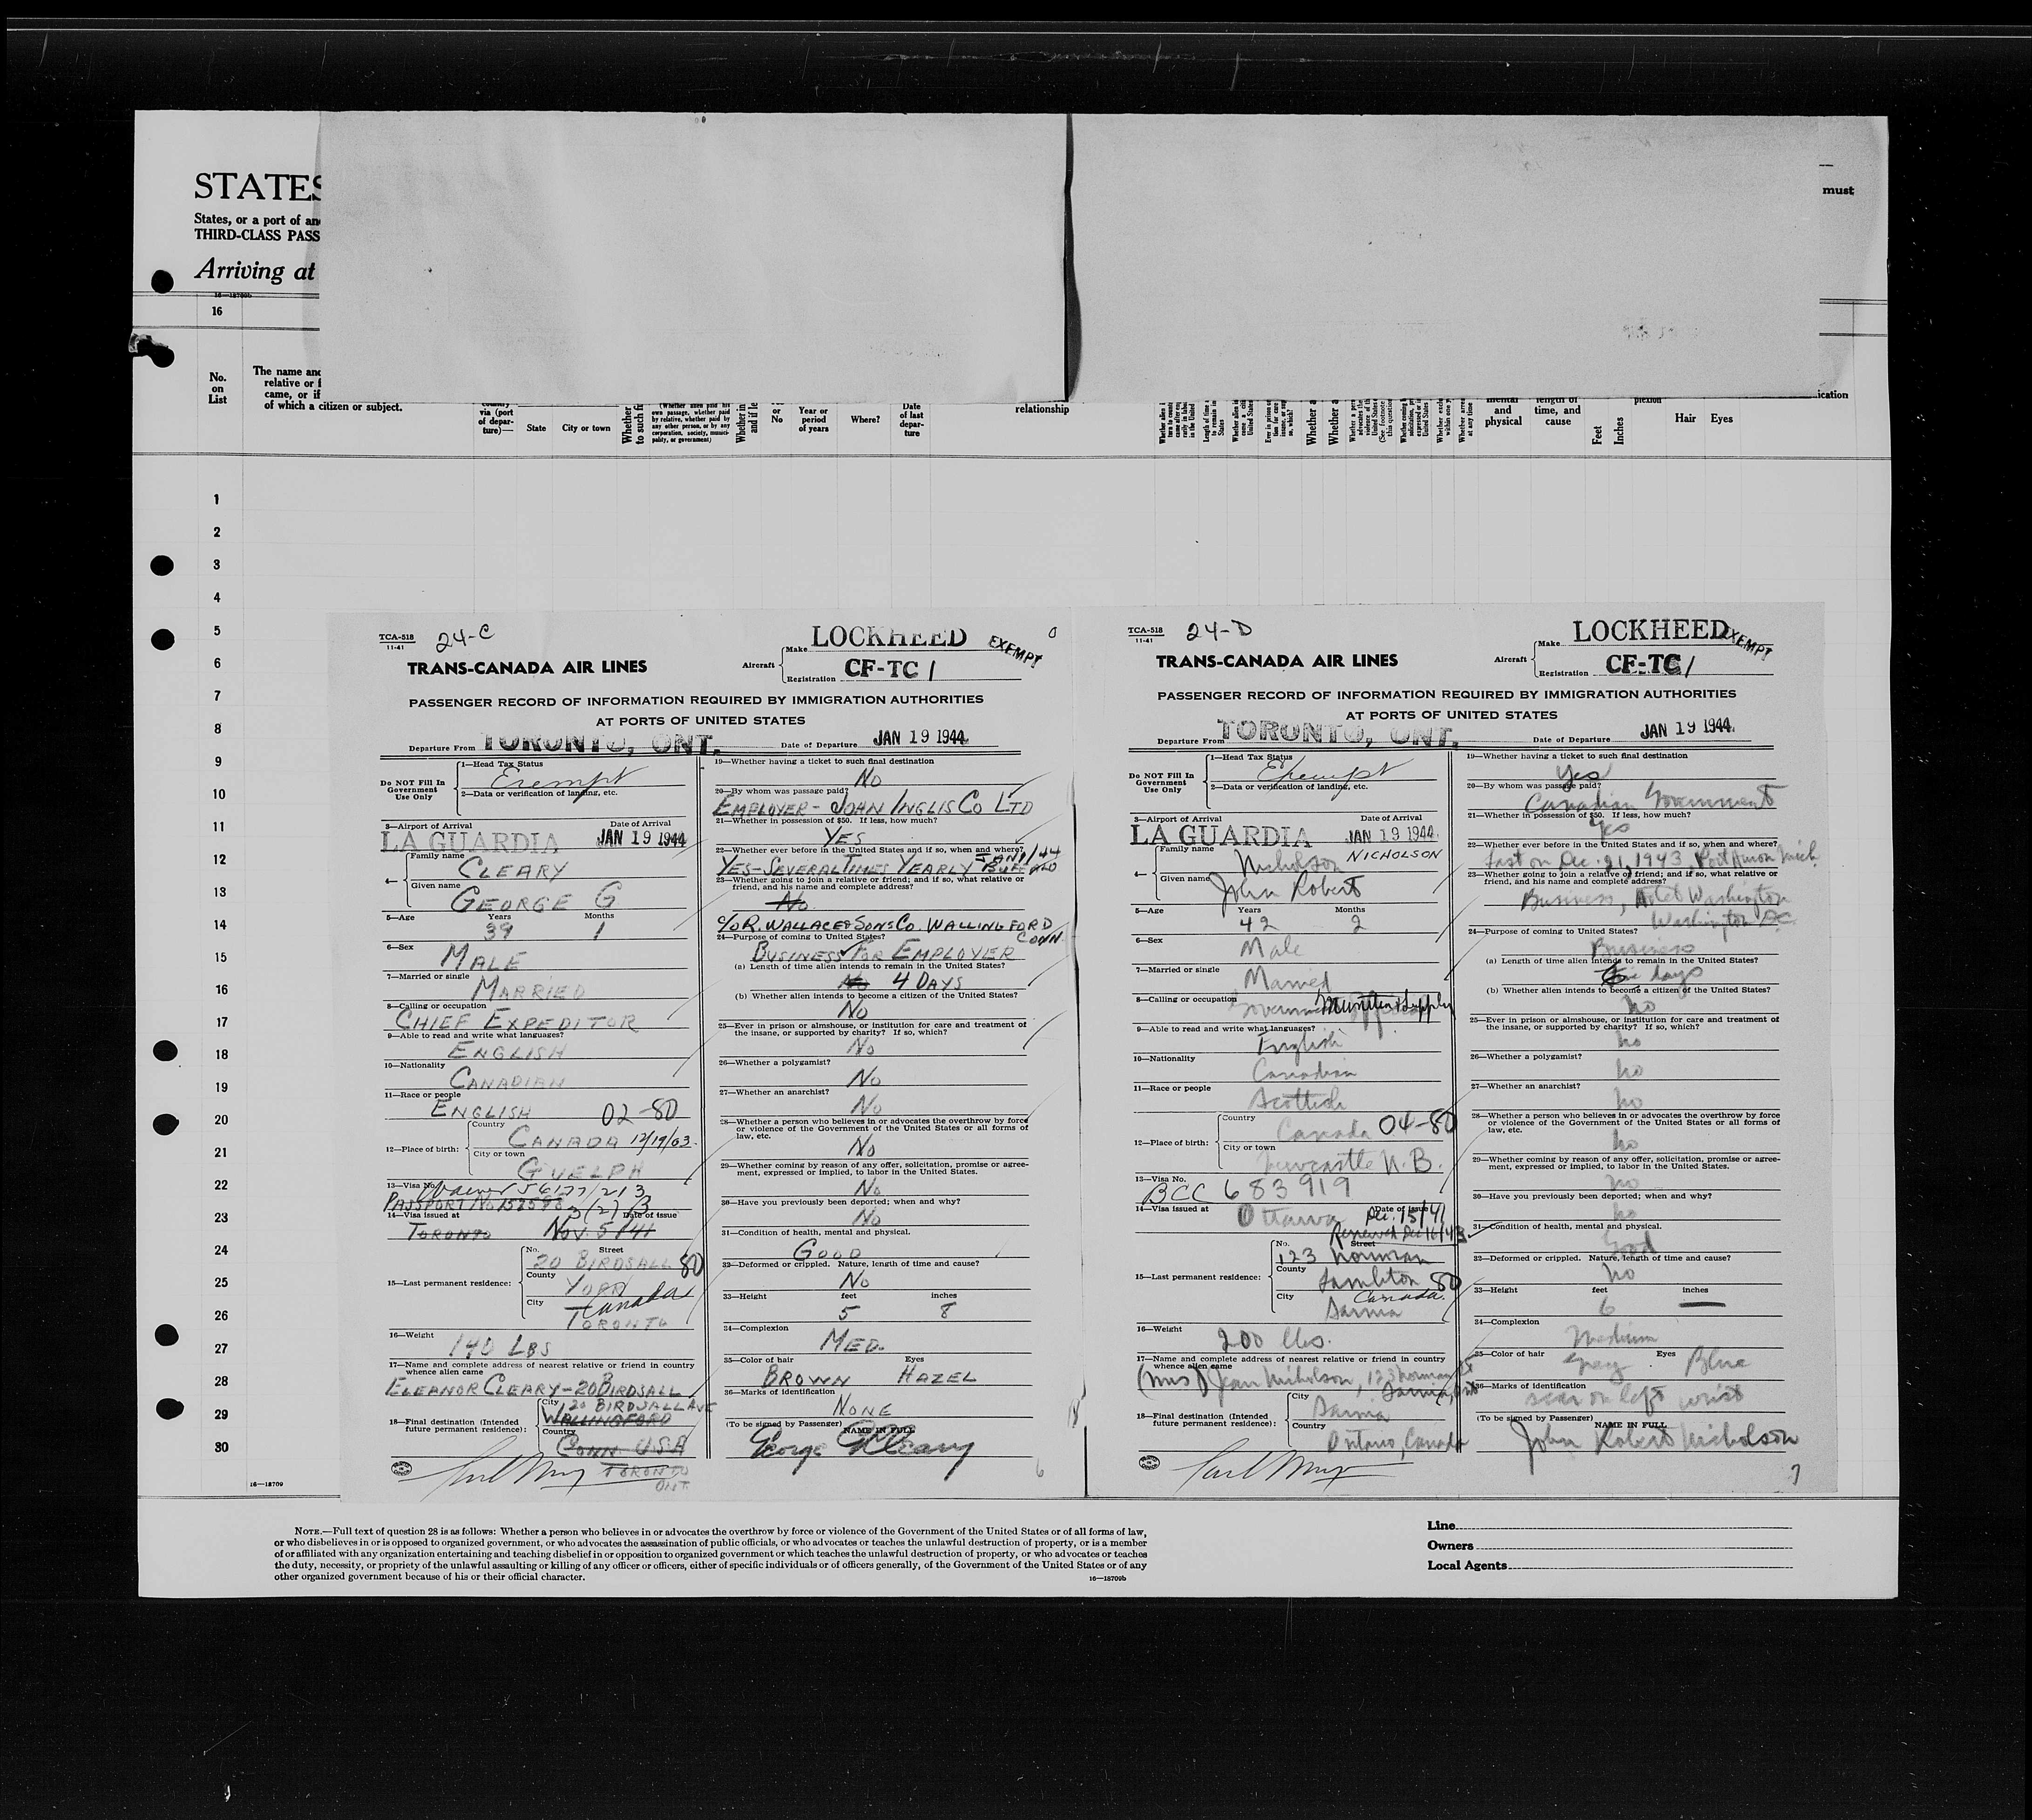 STATES
States, or a port of an
THIRD-CLASS PASS
Arriving at
must
16—18709b
16
No.
on
List
The name and
relative or f
came, or if
of which a citizen or subject.
country
via (port
of depar-
ture)—
State
City or town
Whether
to such fi
(Whether alien paid his
own passage, whether paid
by relative, whether paid by
any other person, or by any
corporation, society, munici-
pality, or government)
Whether in
and if le
or
No
Year or
period
of years
Where?
Date
of last
depar-
ture
relationship
mental
and
physical
length of
time, and
cause
Feet
Inches
plexion
Hair
Eyes
ication
1
2
3
4
5
6
7
8
9
10
11
12
13
14
15
16
17
18
19
20
21
22
23
24
25
26
27
28
29
30
16—18709
TCA-518
11-41
24-C
LOCKHEED
EXEMPT
TRANS-CANADA AIR LINES
Aircraft
Make
Registration CF-TC 1
PASSENGER RECORD OF INFORMATION REQUIRED BY IMMIGRATION AUTHORITIES
AT PORTS OF UNITED STATES
Departure From TORONTO, ONT. Date of Departure JAN 19 1944
Do NOT Fill In
Government
Use Only
1—Head Tax Status
Exempt
2—Data or verification of landing, etc.
3—Airport of Arrival Date of Arrival
LA GUARDIA JAN 19 1944
4—
Family name
CLEARY
Given name
GEORGE G
5—Age Years Months
39 1
6—Sex
MALE
7—Married or single
MARRIED
8—Calling or occupation
CHIEF EXPEDITOR
9—Able to read and write what languages?
ENGLISH
10—Nationality
CANADIAN
11—Race or people
ENGLISH 02-80
12—Place of birth:
Country
CANADA 12/19/03
City or town
GUELPH
13—Visa No.
PASSPORT No
14—Visa issued at Date of issue
TORONTO Nov. 5/41
15—Last permanent residence:
No. Street
20 BIRDSALL 80
County
YORK
Canada
City
TORONTO
16—Weight
140 LBS
17—Name and complete address of nearest relative or friend in country
whence alien came
ELEANOR CLEARY - 20 BIRDSALL
18—Final destination (Intended
future permanent residence):
City
20 BIRDSALL AVE
WALLINGFORD
Country
CONN. U.S.A
TORONTO
ONT.
19—Whether having a ticket to such final destination
No
20—By whom was passage paid?
EMPLOYER - JOHN INGLIS CO LTD
21—Whether in possession of $50. If less, how much?
YES
22—Whether ever before in the United States and if so, when and where?
YES - SEVERAL TIMES YEARLY JAN 1/44
BUFFALO
23—Whether going to join a relative or friend; and if so, what relative or
friend, and his name and complete address?
No
c/o R. WALLACE & SONS CO. WALLINGFORD
CONN.
24—Purpose of coming to United States?
BUSINESS FOR EMPLOYER
(a) Length of time alien intends to remain in the United States?
No 4 DAYS
(b) Whether alien intends to become a citizen of the United States?
No
25—Ever in prison or almshouse, or institution for care and treatment of
the insane, or supported by charity? If so, which?
No
26—Whether a polygamist?
No
27—Whether an anarchist?
No
28—Whether a person who believes in or advocates the overthrow by force
or violence of the Government of the United States or all forms of
law, etc.
No
29—Whether coming by reason of any offer, solicitation, promise or agree-
ment, expressed or implied, to labor in the United States.
No
30—Have you previously been deported; when and why?
No
31—Condition of health, mental and physical.
GOOD
32—Deformed or crippled. Nature, length of time and cause?
No
33—Height feet inches
5 8
34—Complexion
MED.
35—Color of hair Eyes
BROWN HAZEL
36—Marks of identification
NONE
(To be signed by Passenger) NAME IN FULL
George G Cleary
6
TCA-518
11-41
24-D
LOCKHEED
EXEMPT
TRANS-CANADA AIR LINES
Aircraft
Make
Registration CF-TC 1
PASSENGER RECORD OF INFORMATION REQUIRED BY IMMIGRATION AUTHORITIES
AT PORTS OF UNITED STATES
Departure From TORONTO, ONT. Date of Departure JAN 19 1944
Do NOT Fill In
Government
Use Only
1—Head Tax Status
Exempt
2—Data or verification of landing, etc.
3—Airport of Arrival Date of Arrival
LA GUARDIA JAN 19 1944
4—
Family name
Nicholson NICHOLSON
Given name
John Robert
5—Age Years Months
42 2
6—Sex
Male
7—Married or single
Married
8—Calling or occupation
Munition & Supply
9—Able to read and write what languages?
English
10—Nationality
Canadian
11—Race or people
Scottish
12—Place of birth:
Country
Canada 04-80
City or town
Newcastle N.B.
13—Visa No.
BCC 683919
14—Visa issued at Date of issue
Ottawa Dec. 15/41
Renewed Dec 16/43
15—Last permanent residence:
No. Street
123 Norman
County
Lambton 80
Canada.
City
Sarnia
16—Weight
200 lbs.
17—Name and complete address of nearest relative or friend in country
whence alien came
(Mrs) Jean Nicholson, 123 Norman St
Sarnia, Ont
18—Final destination (Intended
future permanent residence):
City
Sarnia
Country
Ontario, Canada
19—Whether having a ticket to such final destination
Yes
20—By whom was passage paid?
Canadian Government
21—Whether in possession of $50. If less, how much?
Yes
22—Whether ever before in the United States and if so, when and where?
Last on Dec. 21, 1943, Port Huron Mich.
23—Whether going to join a relative or friend; and if so, what relative or
friend, and his name and complete address?
Business, Hotel Washington
Washington DC
24—Purpose of coming to United States?
Business
(a) Length of time alien intends to remain in the United States?
days
(b) Whether alien intends to become a citizen of the United States?
no
25—Ever in prison or almshouse, or institution for care and treatment of
the insane, or supported by charity? If so, which?
no
26—Whether a polygamist?
no
27—Whether an anarchist?
no
28—Whether a person who believes in or advocates the overthrow by force
or violence of the Government of the United States or all forms of
law, etc.
no
29—Whether coming by reason of any offer, solicitation, promise or agree-
ment, expressed or implied, to labor in the United States.
no
30—Have you previously been deported; when and why?
no
31—Condition of health, mental and physical.
Good
32—Deformed or crippled. Nature, length of time and cause?
no
33—Height feet inches
6 —
34—Complexion
Medium
35—Color of hair Eyes
Grey Blue
36—Marks of identification
scar on left wrist
(To be signed by Passenger) NAME IN FULL
John Robert Nicholson
7
NOTE.—Full text of question 28 is as follows: Whether a person who believes in or advocates the overthrow by force or violence of the Government of the United States or of all forms of law,
or who disbelieves in or is opposed to organized government, or who advocates the assassination of public officials, or who advocates or teaches the unlawful destruction of property, or is a member
of or affiliated with any organization entertaining and teaching disbelief in or opposition to organized government or which teaches the unlawful destruction of property, or who advocates or teaches
the duty, necessity, or propriety of the unlawful assaulting or killing of any officer or officers, either of specific individuals or of officers generally, of the Government of the United States or of any
other organized government because of his or their official character.
16—18709b
Line
Owners
Local Agents